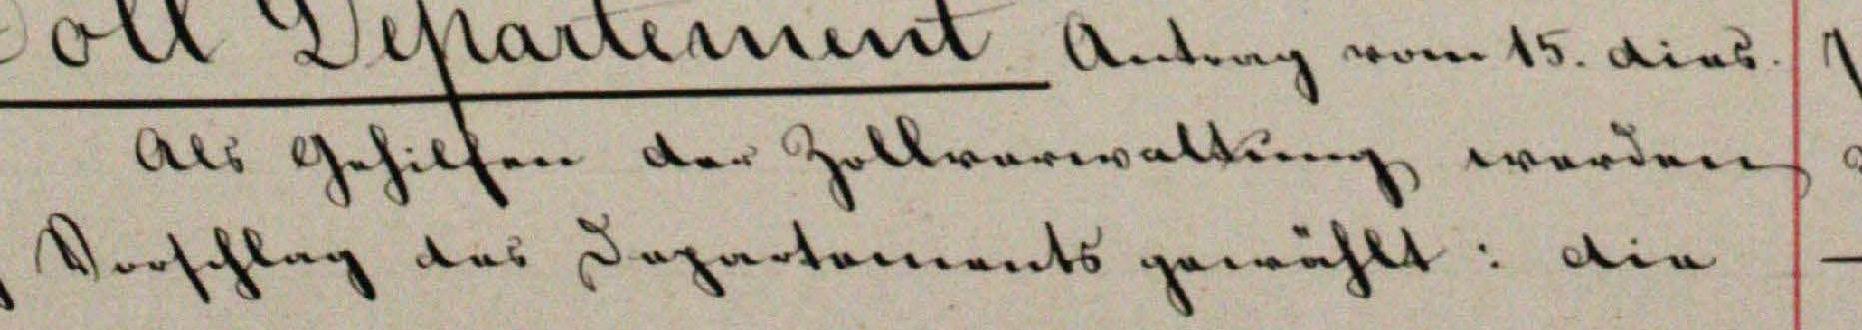 Zoll Departement Antrag vom 15. dies.
Als Gehilfen der Zollverwaltung werden
Vorschlag des Departements gewählt: die